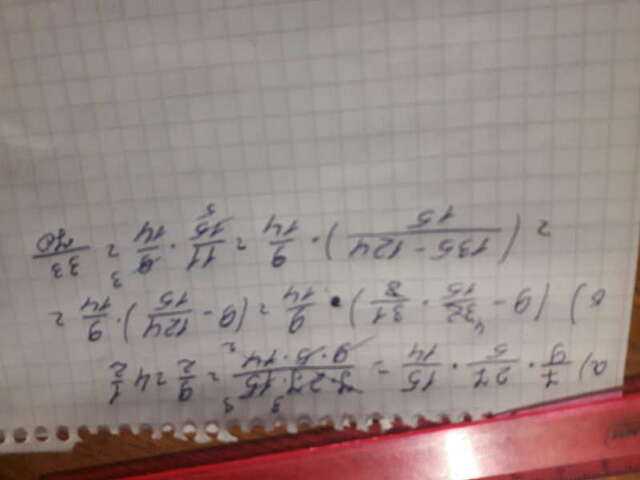 а) 7/9 · 27/5 · 15/14 = 7·27·15/9·5·14 = 9/2 = 4 1/2
в) (9 - 32/15 · 31/8) · 9/14 = (9 - 124/15) · 9/14 =
= (135 - 124/15) · 9/14 = 11/15 · 9/14 = 33/70